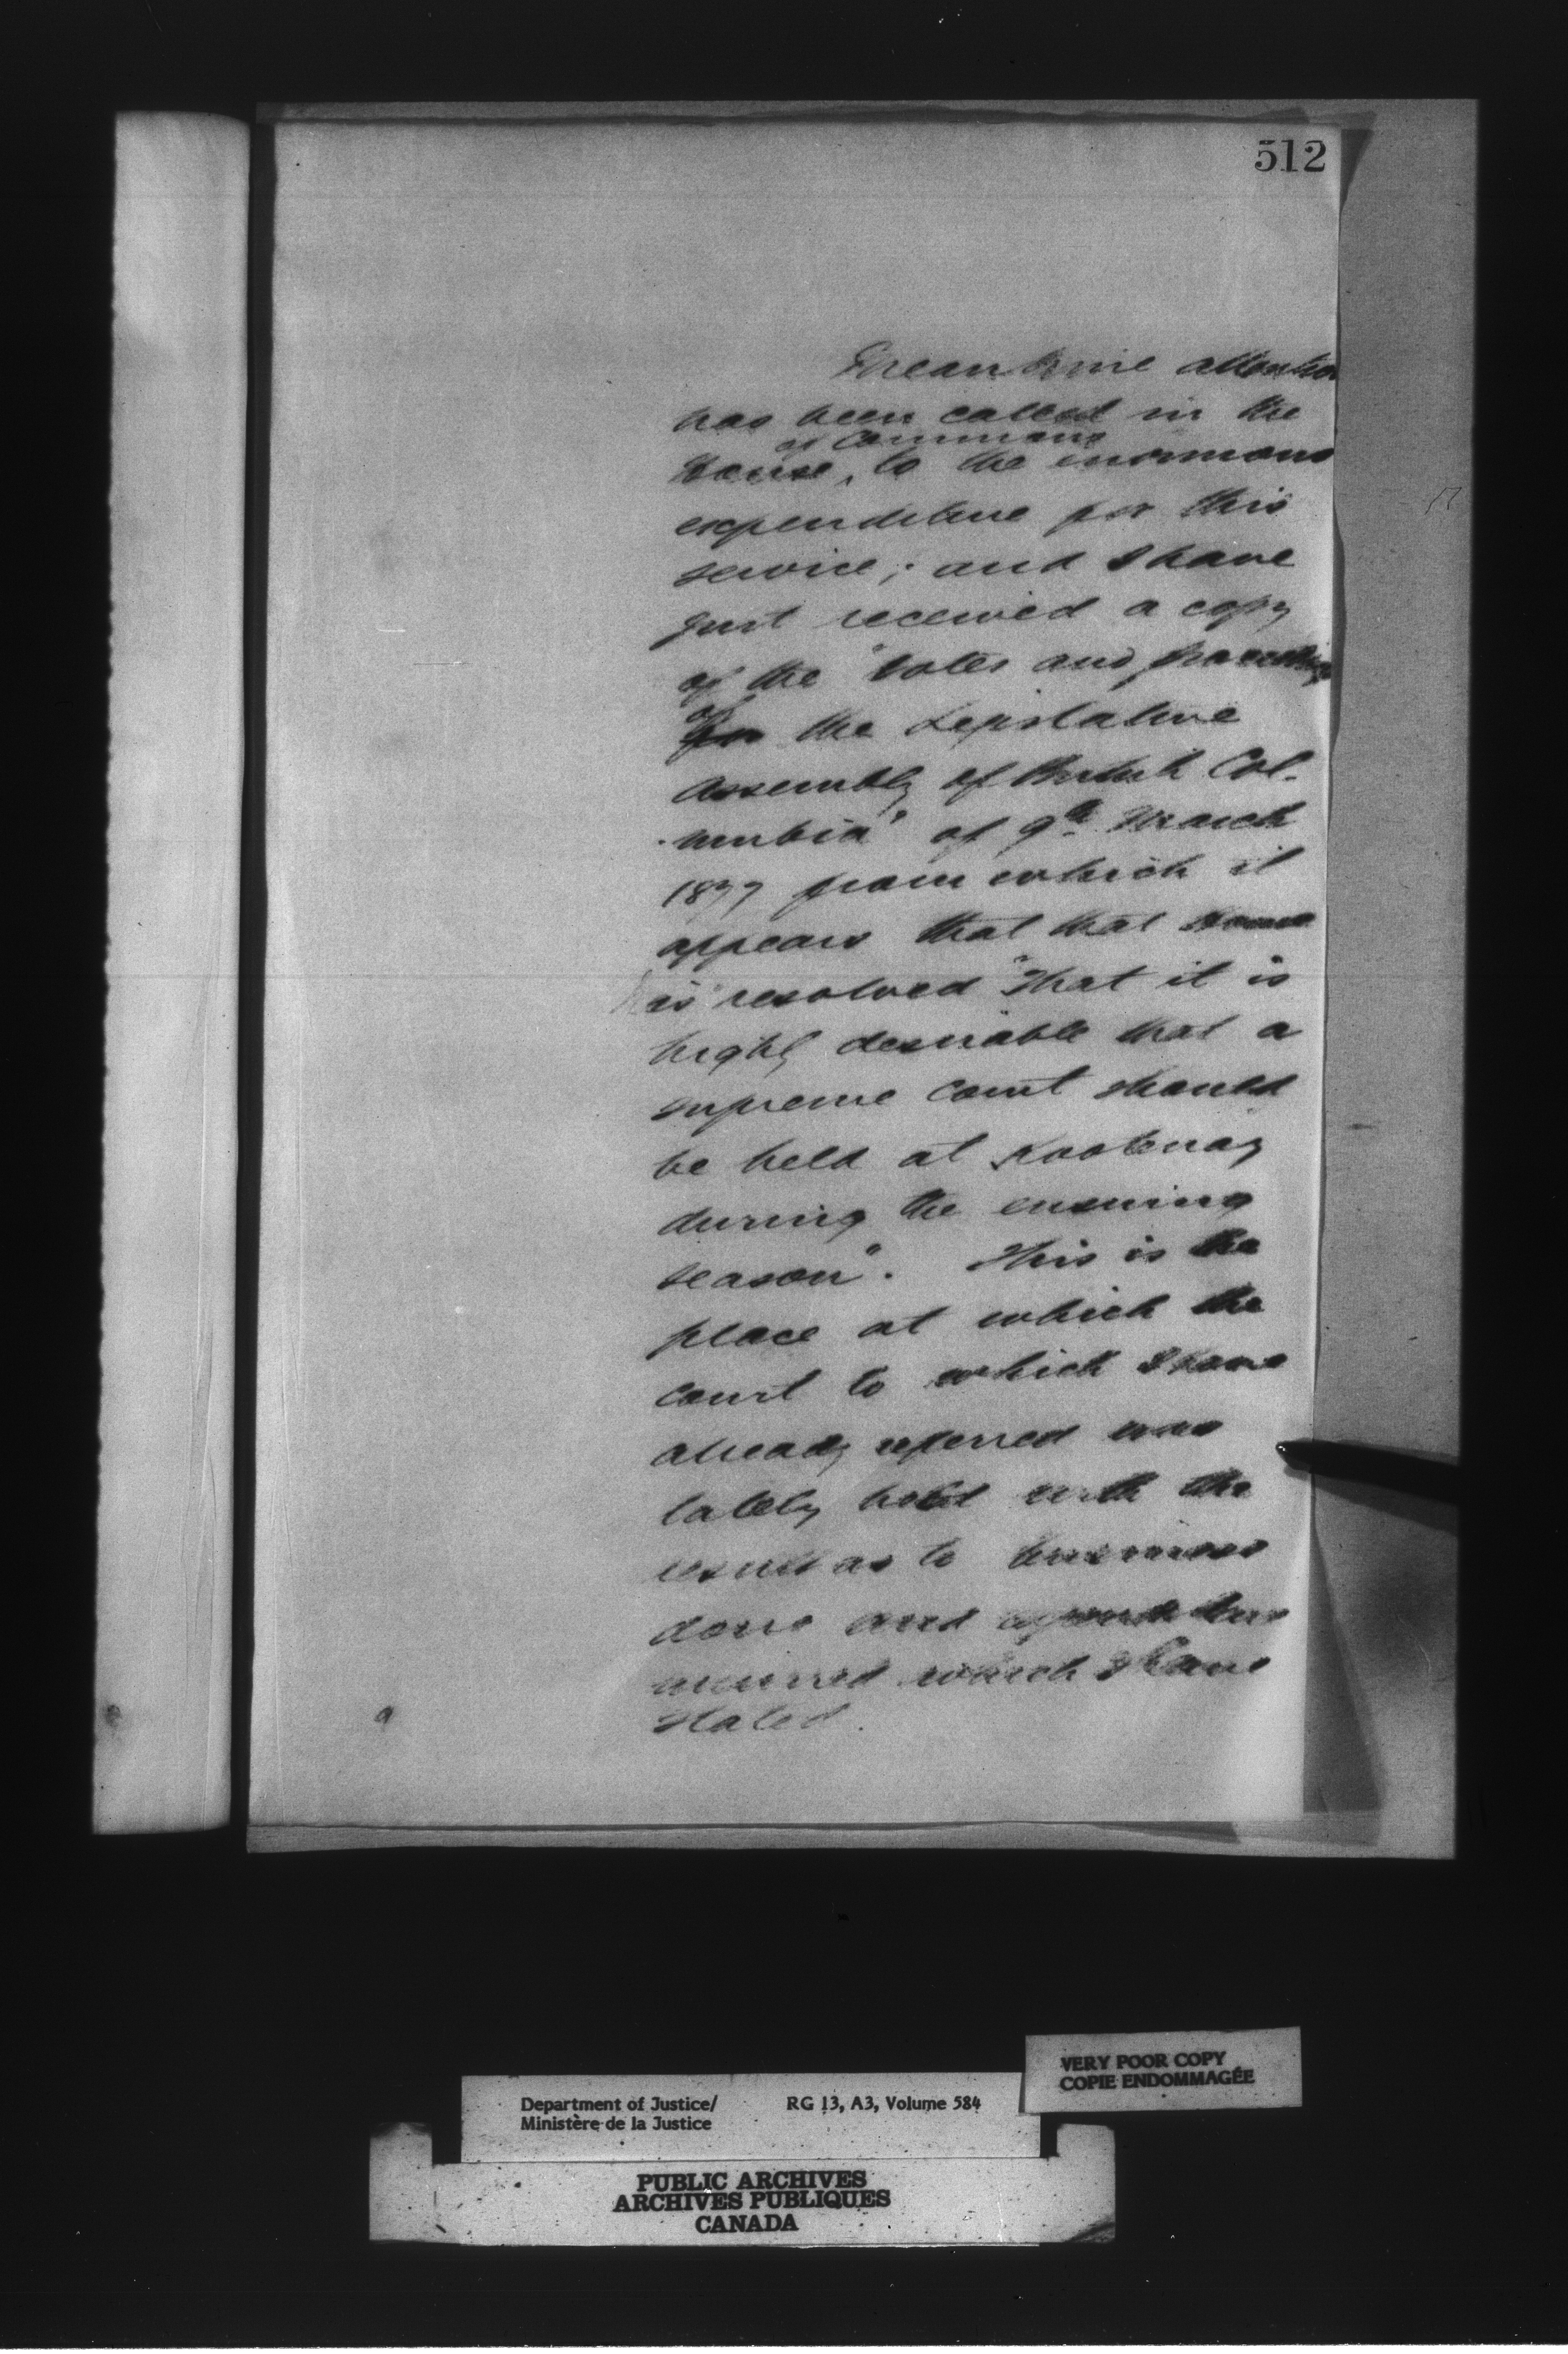 512
Meantime attention
has been called in the
of Commons
House, to the enormous
expenditure for this
service; and I have
just received a copy
of the "Votes and proceedings
of
for the Legislative
Assembly of British Col-
-umbia" of 9th March
1877 from which it
appears that that House
is resolved "That it is
highly desirable that a
supreme court should
be held at Kootenay
during the ensuing
season". This is the
place at which the
court to which I have
already referred was
lately held with the
result as to business
done and expenditure
incurred which I have
stated.
VERY POOR COPY
COPIE ENDOMMAGÉE
Department of Justice/ RG 13, A3, Volume 584
Ministère de la Justice
PUBLIC ARCHIVES
ARCHIVES PUBLIQUES
CANADA